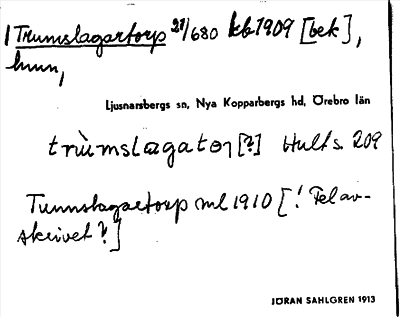 1 Trumslagartorp 21/680 kb 1909 [bek],
hmn,
Ljusnarsbergs sn, Nya Kopparbergs hd, Örebro län
trùmslagator [?] Hults. 209
Tunnslagaretorp ml 1910 [! Felav-
skrivet?]
JÖRAN SAHLGREN 1913